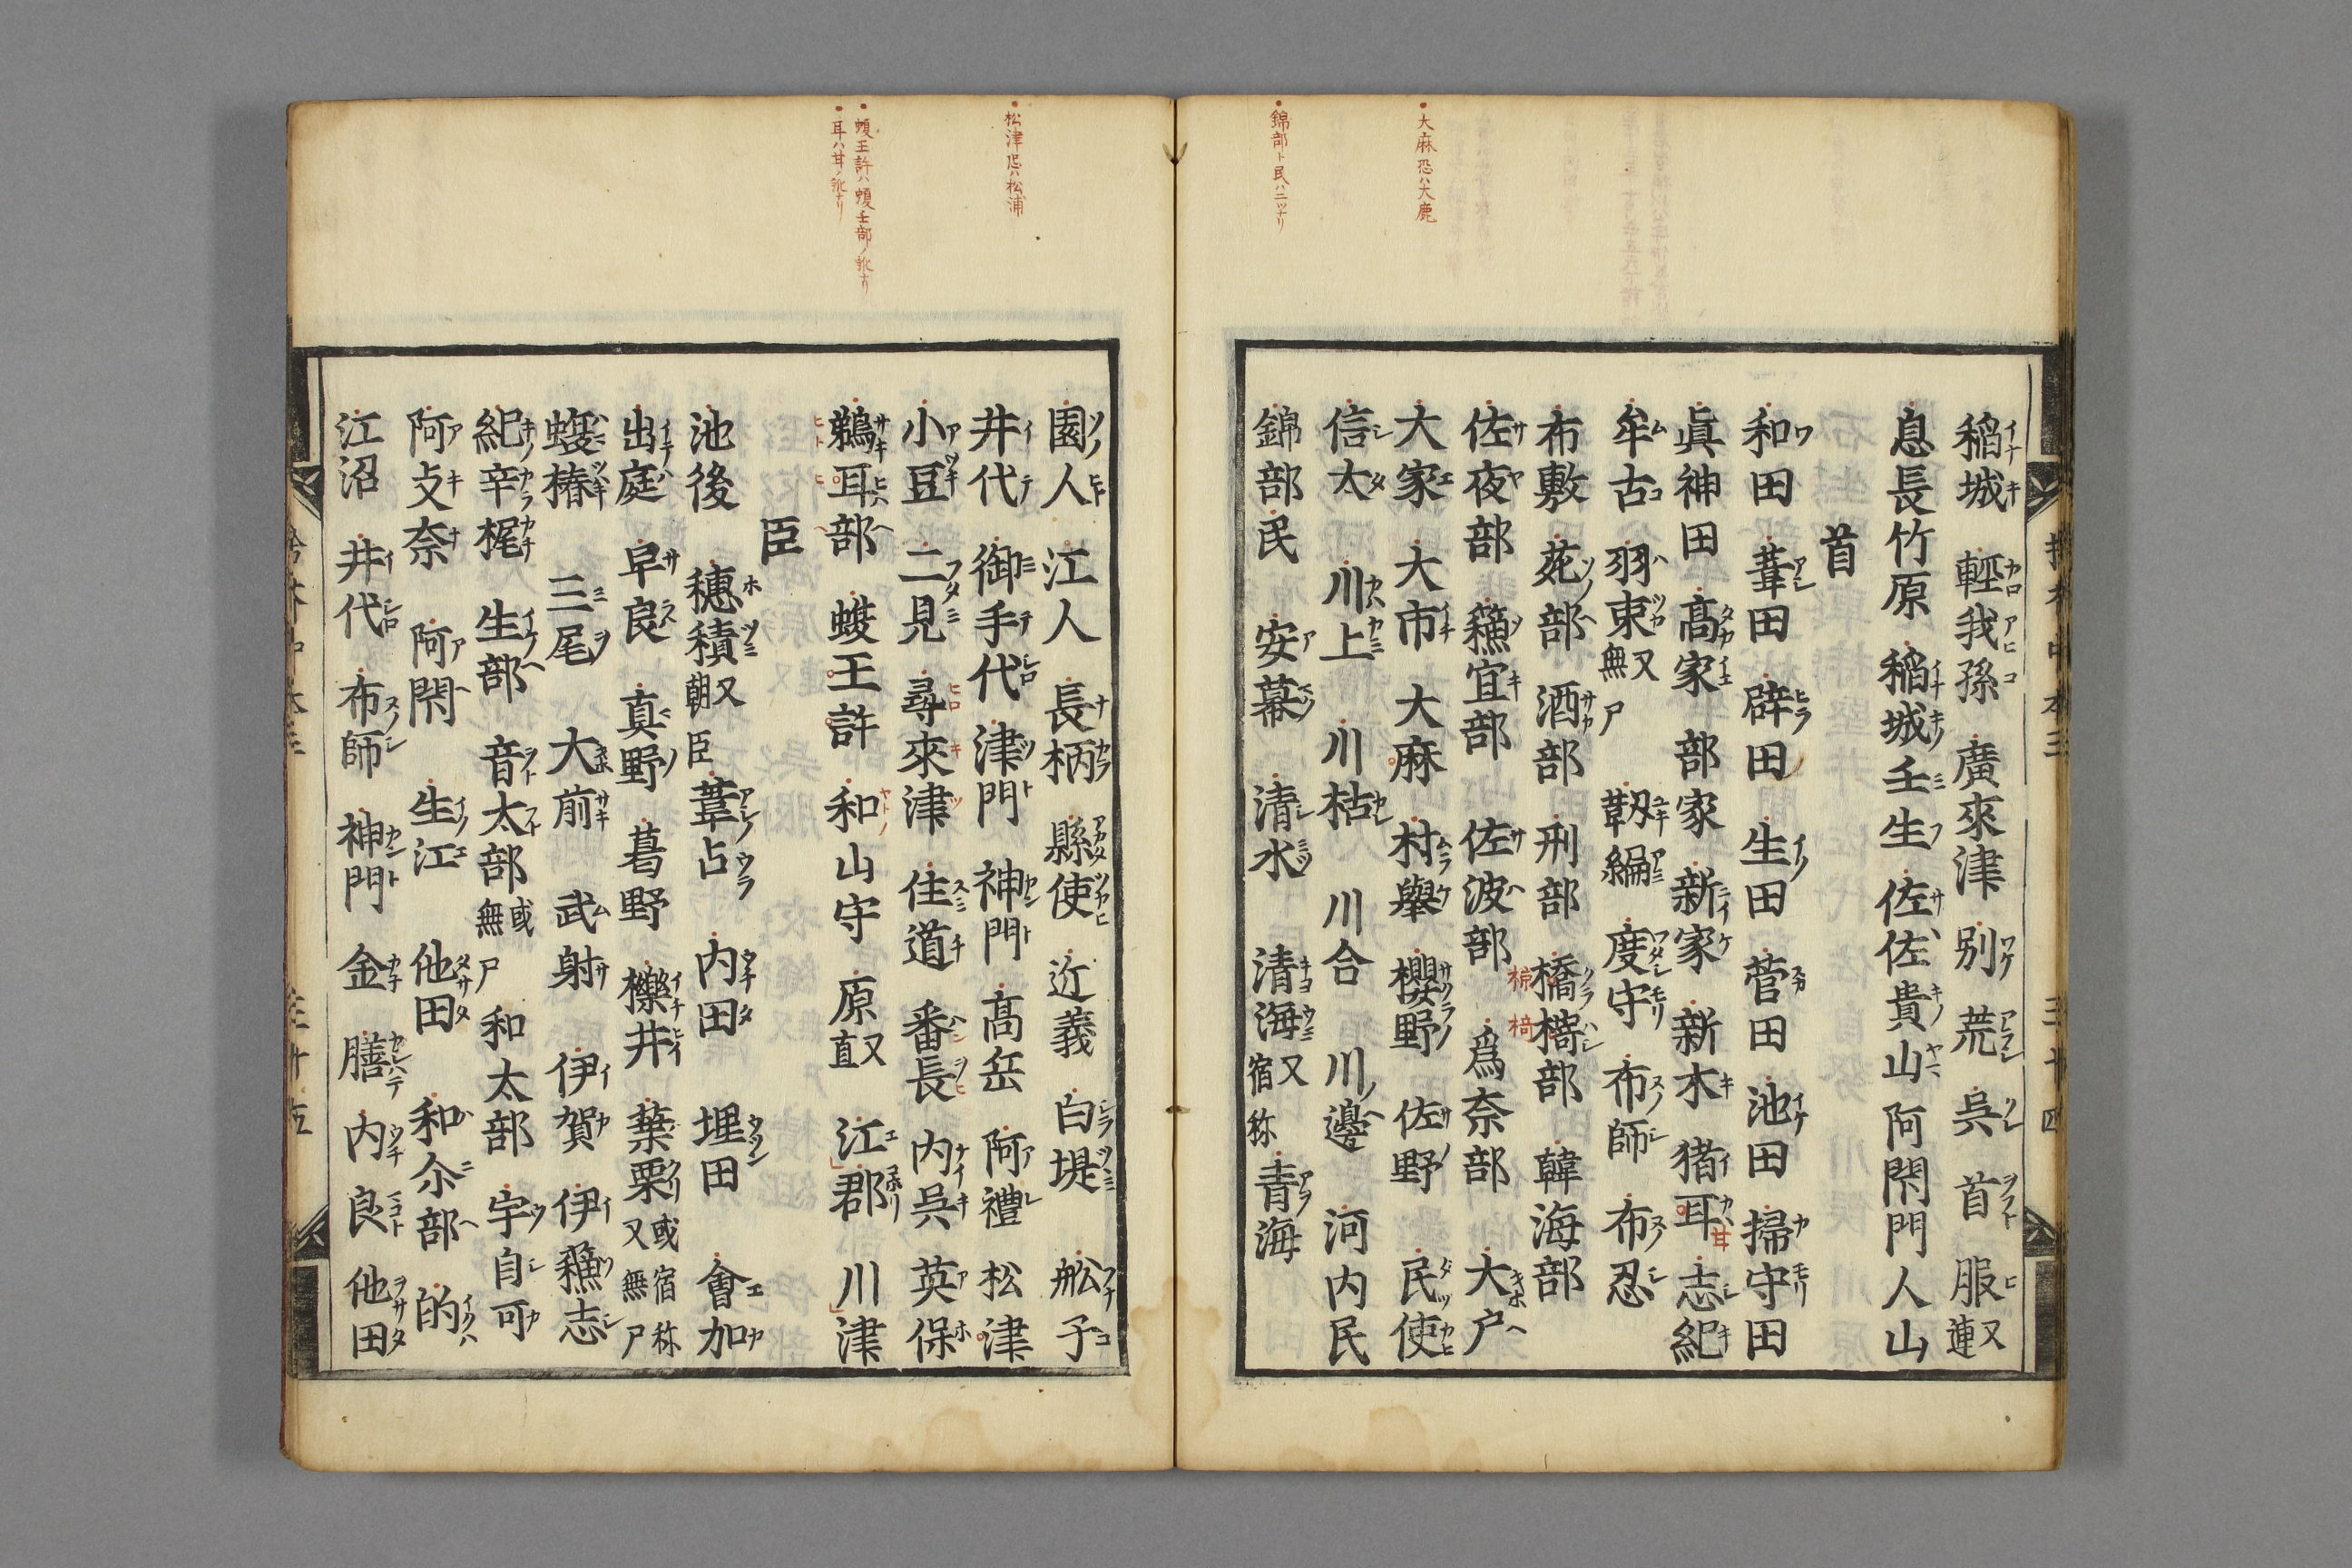 大麻恐ハ大鹿
錦部ト民ハ二ツナリ
稲城 輕我孫 廣來津 別 荒 呉 首 服又連
息長竹原 稲城壬生 佐佐貴山 阿閇門人山
首
和田 葦田 辟田 生田 菅田 池田 掃守田
眞神田 髙家 部家 新家 新木 猪耳 志紀
牟古 羽束又無尸 靱編 度守 布師 布忍
布敷 苑部 酒部 刑部 橋𣘺部 韓海部
佐夜部 䉤宜部 佐波部 爲奈部 大戸
大家 大市 大麻 村擧 櫻野 佐野 民使
信太 川上 川枯 川合 川邊 河内民
錦部民 安幕 清水 清海又宿祢 青海
松津恐ハ松浦
蝮王許ハ蝮壬部ノ訛ナリ
耳ハ甘ノ訛ナリ
園人 江人 長柄 縣使 近義 白堤 舩子
井代 御手代 津門 神門 髙岳 阿禮 松津
小豆 二見 尋來津 住道 番長 内呉 英保
鵜耳部 蝮王許 和山守 原又直 江郡 川津
臣
池後 穗積又朝臣 葦占 内田 埋田 會加
出庭 早良 真野 葛野 櫟井 葉栗或宿祢又無尸
蝮椿 三尾 大前 武射 伊賀 伊蘓志
紀辛梶 生部 音太部或無尸 和太部 宇自可
阿攴奈 阿閇 生江 他田 和尒部 的
江沼 井代 布師 神門 金 膳 内 良 他田